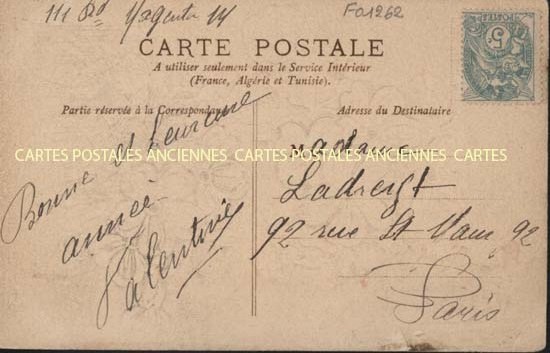 111 Bd Magenta 111
F01262
5
CARTE POSTALE
A utiliser seulement dans le Service Intérieur
(France, Algérie et Tunisie).
Partie réservée à la Correspondance
Adresse du Destinataire
Bonne et heureuse
année
Valentine
Madame
92 rue St 92
Paris
CARTES POSTALES ANCIENNES CARTES POSTALES ANCIENNES CARTES